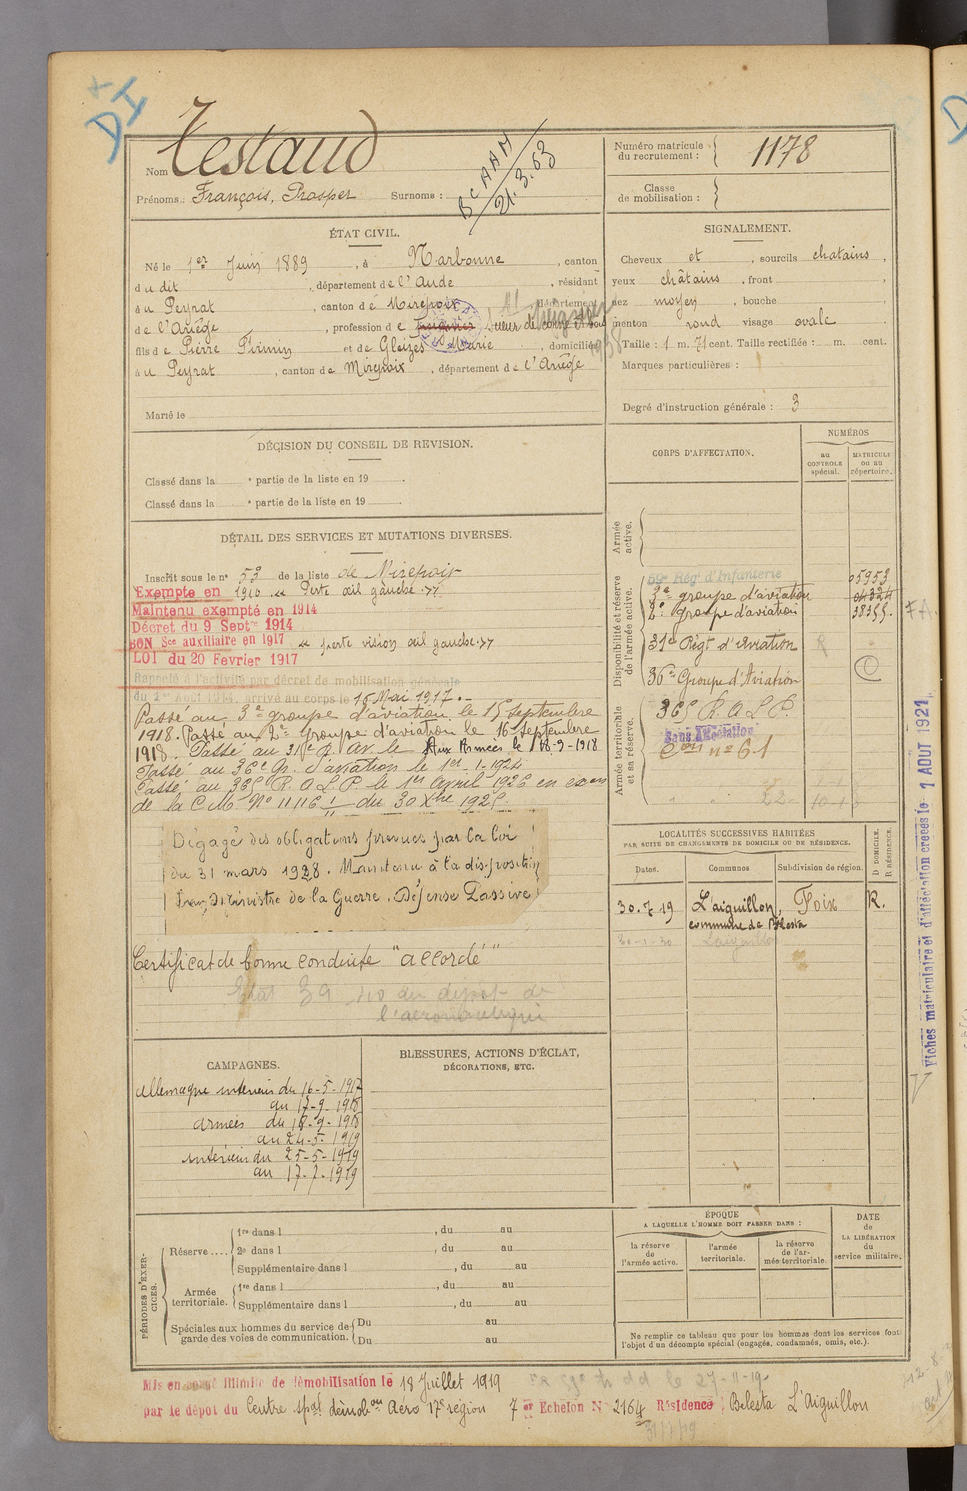 DI
Nom Testaud
Prénoms : François, Prosper Surnoms :
BCAAM
21.3.63
Numéro matricule du recrutement : 1178
Classe de mobilisation :
ÉTAT CIVIL.
Né le 1er Juin 1889, à Narbonne, canton
du dit, département de l'Aude, résidant
au Peyrat, canton de Mirepoix, département
de l'Ariège, profession de
fils de Pierre Firmin et de Gleizes Marie, domiciliés
au Peyrat, canton de Mirepoix, département de l'Ariège
Marié le
SIGNALEMENT.
Cheveux et, sourcils chatains,
yeux châtains, front
nez moyen, bouche
menton rond visage ovale
Taille : 1 m. 71 cent. Taille rectifiée : m. cent.
Marques particulières :
Degré d'instruction générale : 3
DÉCISION DU CONSEIL DE REVISION.
Classé dans la e partie de la liste en 19 .
Classé dans la e partie de la liste en 19 .
DÉTAIL DES SERVICES ET MUTATIONS DIVERSES.
Inscrit sous le n° 53 de la liste de Mirepoix
Exempté en 1910 « Perte œil gauche. »
Maintenu exempté en 1914
Décret du 9 Septre 1914
BON Sce auxiliaire en 1917 « perte vision œil gauche. »
LOI du 20 Fevrier 1917
Rappelé à l'activité par décret de mobilisation générale
du 2 Août 1914. arrivé au corps le 16 Mai 1917. -
Passé au 3e groupe d'aviation le 15 septembre
1918. Passé au 2e Groupe d'aviation le 16 septembre
1918. Passé au 31e R. av. le Aux Armées le 18-9-1918
Passé au 36e Gr. d'aviation le 1er-1-1924
Passé au 365 R.A.L.P. le 1er Avril 1926 en exon
de la C.M. N° 11116 du 30 Xbre 1925.
Dégagé des obligations prévues par la loi
du 31 mars 1928. Maintenu à la disposition
du Ministre de la Guerre. Défense Passive
Certificat de bonne conduite "accordé"
Etat 39 du depot de
l'aéronautique
CORPS D'AFFECTATION.
NUMÉROS
au CONTROLE spécial.
MATRICULE ou au répertoire.
Armée active.
Disponibilité et réserve de l'armée active.
59e Rég. d'Infanterie 05953
3e groupe d'aviation 04324
2e groupe d'aviation 38355.
31e Régt d'Aviation
36e Groupe d'Aviation C
Armée territoriale et sa réserve.
365 R.A.L.P.
Sans Affectation
n° 61
LOCALITÉS SUCCESSIVES HABITÉES
PAR SUITE DE CHANGEMENTS DE DOMICILE OU DE RÉSIDENCE.
Dates. Communes Subdivision de région. D DOMICILE. R RÉSIDENCE.
30.7.19 L'aiguillon, Foix R.
commune de Bélesta
Fiches matriculaire et d'affectation créées le 1 AOUT 1921
CAMPAGNES.
Allemagne intérieur du 16-5-1917
au 17-9-1918
armées du 18-9-1918
au 24-5-1919
intérieur du 25-5-1919
au 17-7-1919
BLESSURES, ACTIONS D'ÉCLAT,
DÉCORATIONS, ETC.
PÉRIODES D'EXERCICES.
Réserve ....
1re dans l , du au
2e dans l , du au
Supplémentaire dans l , du au
Armée territoriale.
1re dans l , du au
Supplémentaire dans l , du au
Spéciales aux hommes du service de garde des voies de communication.
Du au
Du au
ÉPOQUE
A LAQUELLE L'HOMME DOIT PASSER DANS :
la réserve de l'armée active.
l'armée territoriale.
la réserve de l'armée territoriale.
DATE de LA LIBÉRATION du service militaire.
Ne remplir ce tableau que pour les hommes dont les services font
l'objet d'un décompte spécial (engagés, condamnés, omis, etc.).
Mis en congé illimité de démobilisation le 18 Juillet 1919
par le dépôt du Centre spal démobon Aéro 17e région 7er Echelon N° 2164 Résidence : Belesta L'Aiguillon